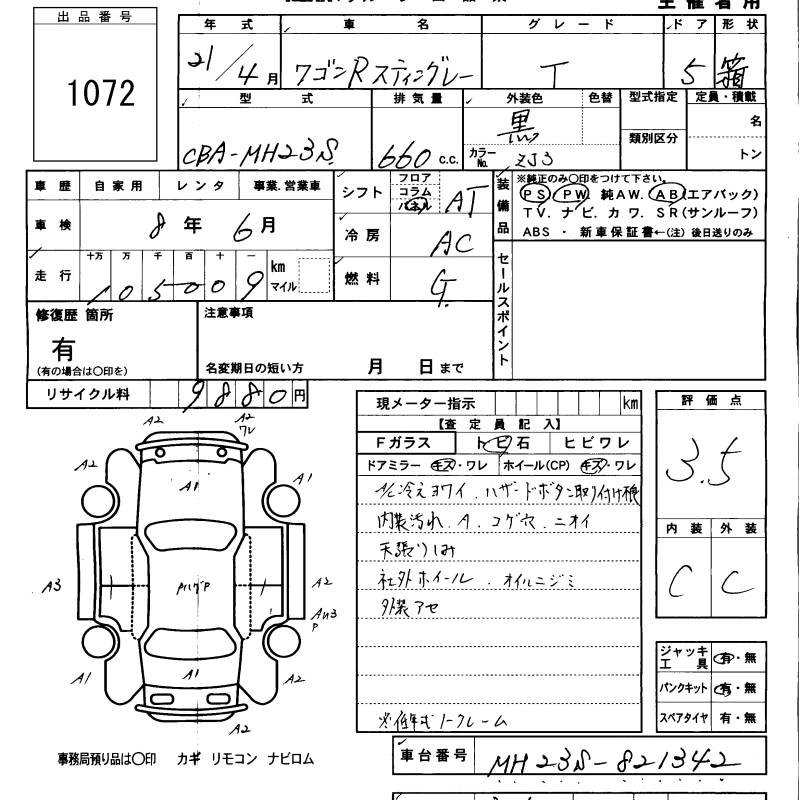 主催者用
出品番号
1072
年式 車名 グレード ドア 形状
21/4月 ワゴンRスティングレー T 5 箱
型式 排気量 外装色 色替 型式指定 定員・積載
CBA-MH23S 660 c.c. 黒 類別区分 名
カラーNo. ZJ3 トン
車歴 自家用 レンタ 事業.営業車
車検 8年 6月
走行 十万 万 千 百 十 一
105009 km マイル
シフト フロア コラム パネル AT
冷房 AC
燃料 G.
装備品
※純正のみ〇印をつけて下さい。
PS PW 純AW. AB(エアバック)
TV. ナビ. カワ. SR(サンルーフ)
ABS ・ 新車保証書←(注) 後日送りのみ
セールスポイント
修復歴 箇所
有
(有の場合は〇印を)
注意事項
名変期日の短い方 月 日まで
リサイクル料 9880円
現メーター指示 km
【査定員記入】
Fガラス トビ石 ヒビワレ
ドアミラー キズ・ワレ ホイール(CP) キズ・ワレ
A/C冷えヨワイ. ハザードボタン取り付け根
内装汚れ. A. コゲ穴. ニオイ
天張りしみ
社外ホイール. オイルニジミ
外装アセ
評価点
3.5
内装 外装
C C
A2 A2
ワレ
A2 A1 A1
A3 A2
AU3
P
A1 A1 A2
A2
ジャッキ工具 有・無
パンクキット 有・無
スペアタイヤ 有・無
事務局預り品は〇印 カギ リモコン ナビロム
車台番号 MH23S-821342